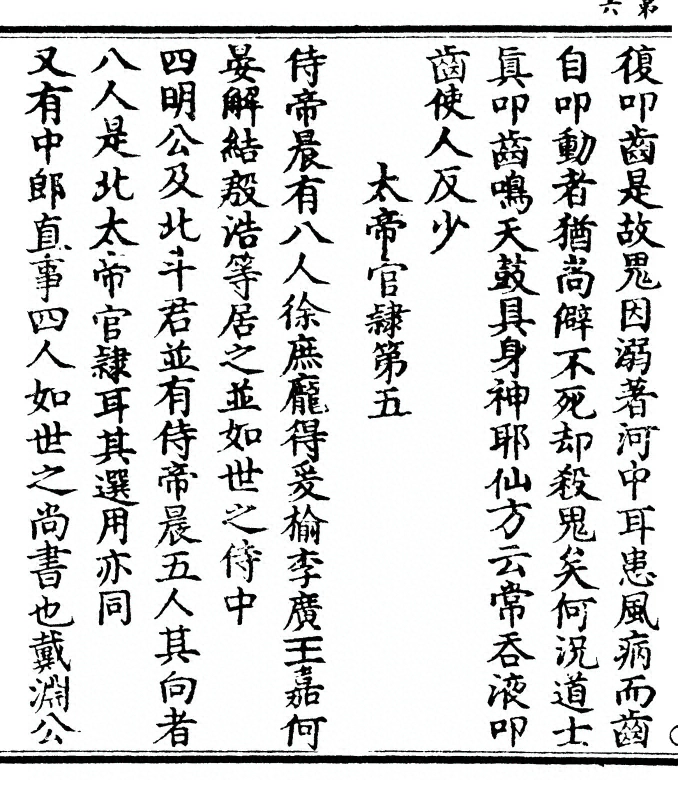 第六
復叩齒是故鬼因溺著河中耳患風病而齒
自叩動者猶尚僻不死却殺鬼矣何況道士
真叩齒鳴天鼓具身神耶仙方云常吞液叩
齒使人反少
太帝官隷第五
侍帝晨有八人徐庶龐得爰榆李廣王嘉何
晏解結殷浩等居之並如世之侍中
四明公及北斗君並有侍帝晨五人其向者
八人是北太帝官隷耳其選用亦同
又有中郎直事四人如世之尚書也戴淵公